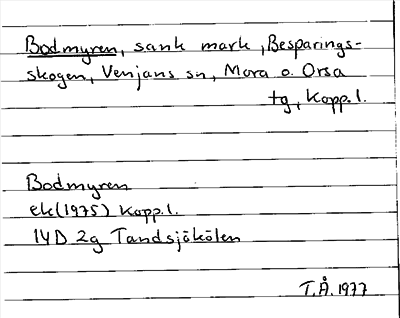 Bodmyren, sank mark, Besparings-
skogen, Venjans sn, Mora o. Orsa
tg, Kopp. l.
Bodmyren
ek(1975) Kopp. l.
14D 2g Tandsjökölen
T.Å. 1977